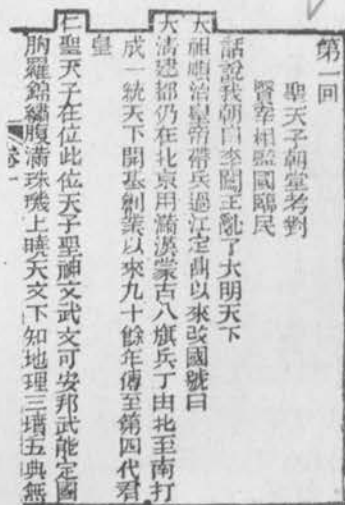 第一回
聖天子朝堂考對
賢宰相監國臨民
話說我朝自李闖王亂了大明天下
太祖順治皇帝帶兵過江定鼎以來改國號曰
大清建都仍在北京用滿漢蒙古八旗兵丁由北至南打
成一統天下開基創業以來九十餘年傳至第四代君
皇
仁聖天子在位此位天子聖神文武文可安邦武能定國
胸羅錦繡腹滿珠璣上曉天文下知地理三墳五典無
卷一